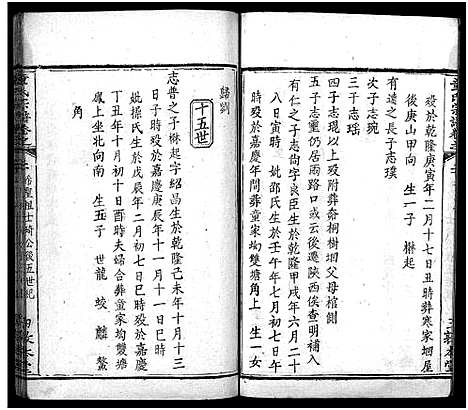 歿於乾隆庚寅年二月十七日丑時葬寒家垇屋
後庚山甲向　生一子　樾
有遠之長子志璞
次子志琬
三子志瑶
四子志琨以上歿附葬畚桐樹垇父母棺側
五子志璽仍居雨路口或云後遷陝西俟查明補入
有仁之子志尚字良臣生於乾隆甲戌年六月二十
八日寅時　妣邵氏生於壬午年七月初七日午
時歿於嘉慶年間葬童家垇雙塘角上　生一女
歸劉
十五世
志普之子楙起字紹昌生於乾隆己未年十月十三
日子時歿於嘉慶庚辰年十一月十一日巳時
妣操氏生於庚辰年二月初七日巳時歿於嘉慶
丁丑年十月初十日酉時夫婦合葬童家垇雙塘
廠上坤艮向　生五子　世龍　蛟　麟　鰲
角